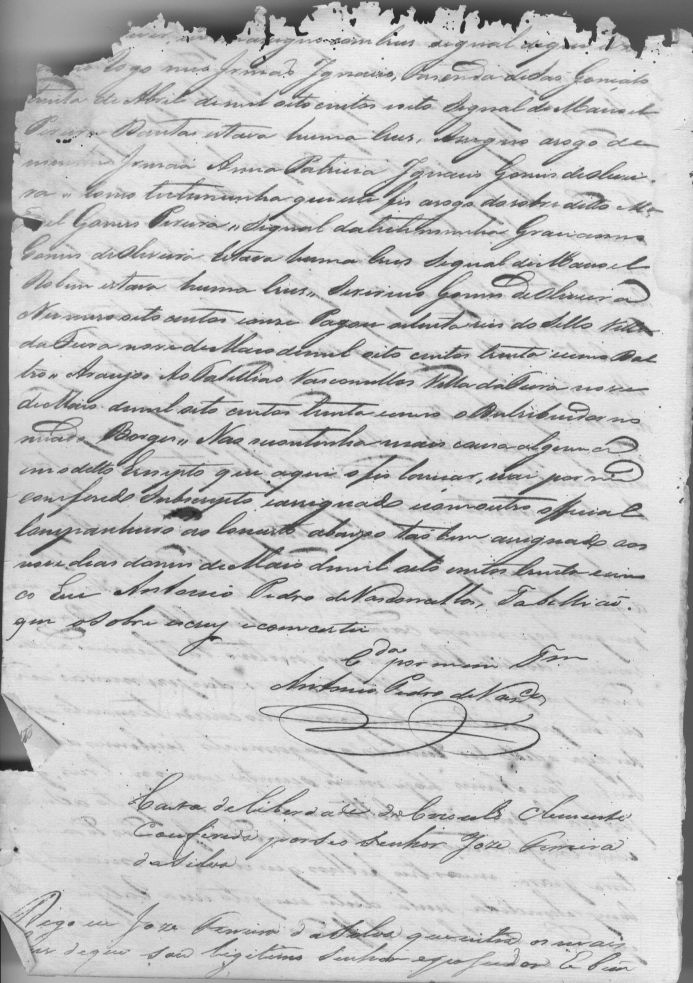 logo meu Irmaõ Ignacio, Rezenda ditas Gonçalo
trinta de Abril de mil oito centos oito Signal de Manoel
Pereira Dantas estava huma Crus, asigno arogo de
minha Irmaã Anna Patricia Ignacio Gomes de Olivei
ra,, Como testemunha que este fis arogo do sobredito Ma
noel Gomes Pereira,, Signal da testemunha Graciano
Gomes de Oliveira estava huma Crus Signal de Manoel
Rolim estava huma Crus,, Severino Gomes de Oliveira
Numero oito centos e onze Pagou oitenta reis do Sello Villa
da Feira nove de Maio de mil oito centos trinta e cinco Bas
tos,, Araujo Ao Tabelliaõ Vasconcellos Villa da Feira nove
de Maio de mil oito centos trinta e cinco o Destribuidor no
meado Borges,, Naõ se continha mais cousa alguma
em o ditto Escripto que aqui o fis lansar, vai por mi
conferido Subscripto e asignado e com outro official
Companheiro ao Concerto abaixo taõ bem asignado aos
nove dias do mes de Maio de mil oito centos trinta e cin
co Eu Antonio Pedro de Vasconcellos, Tabelliaõ
que o sobre escrevy e concertei
C.da por mim Tam
Antonio Pedro de Vasc.os
Carta de Liberdade do Crioulo Clemente
Conferida por seo Senhor Joze Ferreira
da Silva
Digo eu Joze Ferreira da Silva que entre os mais
bens de que sou legitimo Senhor e pesuidor E bem